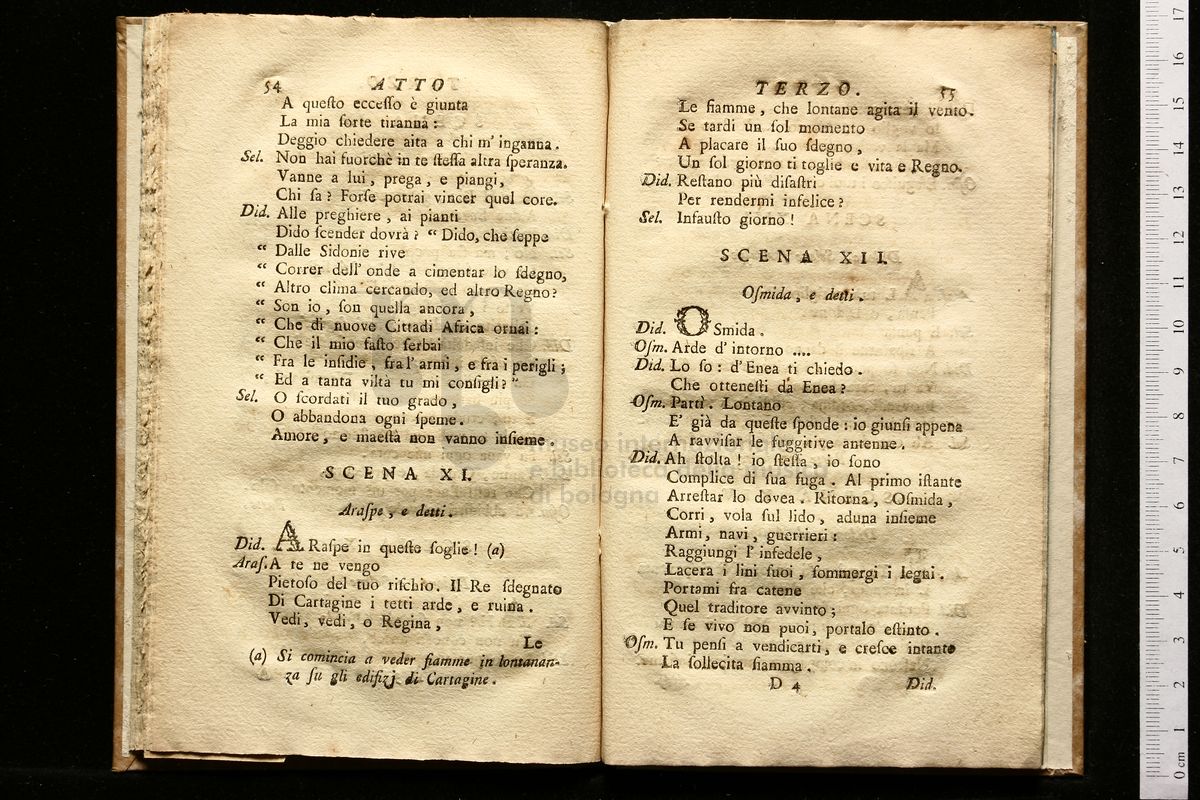 54 ATTO
A queſto ecceſſo è giunta
La mia ſorte tiranna:
Deggio chiedere aita a chi m' inganna.
Sel. Non hai fuorchè in te ſteſſa altra ſperanza.
Vanne a lui, prega, e piangi,
Chi ſa? Forſe potrai vincer quel core.
Did. Alle preghiere, ai pianti
Dido ſcender dovrà? “ Dido, che ſeppe
“ Dalle Sidonie rive
“ Correr dell' onde a cimentar lo ſdegno,
“ Altro clima cercando, ed altro Regno?
“ Son io, ſon quella ancora,
“ Che di nuove Cittadi Africa ornai:
“ Che il mio faſto ſerbai
“ Fra le inſidie, fra l' armi, e fra i perigli;
“ Ed a tanta viltà tu mi conſigli? “
Sel. O ſcordati il tuo grado,
O abbandona ogni ſpeme.
Amore, e maeſtà non vanno inſieme.
SCENA XI.
Araſpe, e detti.
Did. ARaſpe in queſte ſoglie! (a)
Araſ. A te ne vengo
Pietoſo del tuo riſchio. Il Re ſdegnato
Di Cartagine i tetti arde, e ruina.
Vedi, vedi, o Regina,
Le
(a) Si comincia a veder fiamme in lontanan-
za ſu gli edifizj di Cartagine.
TERZO. 55
Le fiamme, che lontane agita il vento.
Se tardi un ſol momento
A placare il ſuo ſdegno,
Un ſol giorno ti toglie e vita e Regno.
Did. Reſtano più diſaſtri
Per rendermi infelice?
Sel. Infauſto giorno!
SCENA XII.
Oſmida, e detti.
Did. OSmida.
Oſm. Arde d' intorno ....
Did. Lo ſo: d' Enea ti chiedo.
Che otteneſti da Enea?
Oſm. Partì. Lontano
E' già da queſte ſponde: io giunſi appena
A ravviſar le fuggitive antenne.
Did. Ah ſtolta! io ſteſſa, io ſono
Complice di ſua fuga. Al primo iſtante
Arreſtar lo dovea. Ritorna, Oſmida,
Corri, vola ſul lido, aduna inſieme
Armi, navi, guerrieri:
Raggiungi l' infedele,
Lacera i lini ſuoi, ſommergi i legni.
Portami fra catene
Quel traditore avvinto;
E ſe vivo non puoi, portalo eſtinto.
Oſm. Tu penſi a vendicarti, e creſce intanto
La ſollecita fiamma.
D 4 Did.
museo inter
e biblioteca della musica
di bologna
0 cm 1 2 3 4 5 6 7 8 9 10 11 12 13 14 15 16 17